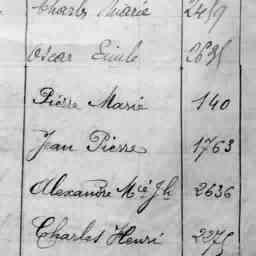 Charles Marie 2459
Oscar Emile 2635
Pierre Marie 140
Jean Pierre 1763
Alexandre Mie Jh 2636
Charles Henri 2275